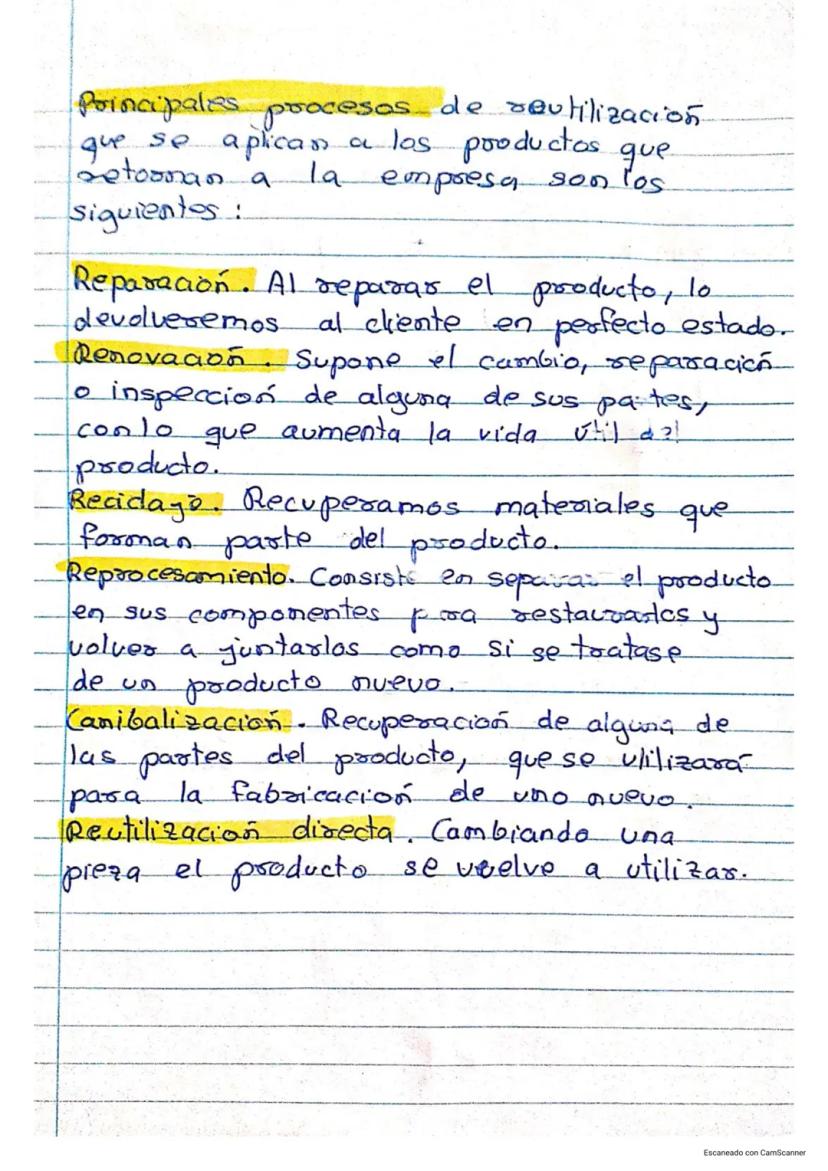 Principales procesos de reutilización
que se aplican a los productos que
retornan a la empresa son los
siguientes:
Reparación. Al reparar el producto, lo
devolveremos al cliente en perfecto estado.
Renovación. Supone el cambio, reparación
o inspección de alguna de sus partes,
con lo que aumenta la vida útil del
producto.
Reciclaje. Recuperamos materiales que
forman parte del producto.
Reprocesamiento. Consiste en separar el producto
en sus componentes para restaurarlos y
volver a juntarlos como si se tratase
de un producto nuevo.
Canibalización. Recuperación de alguna de
las partes del producto, que se utilizará
para la fabricación de uno nuevo.
Reutilización directa. Cambiando una
pieza el producto se vuelve a utilizar.
Escaneado con CamScanner